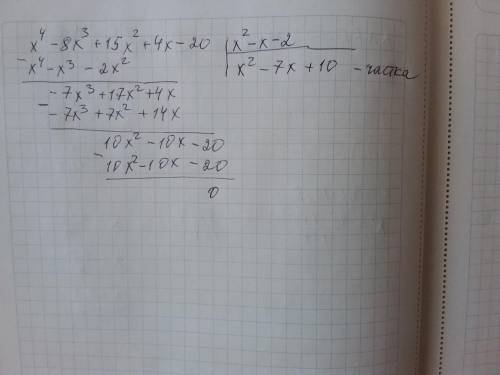 x⁴ - 8x³ + 15x² + 4x - 20 | x² - x - 2
- x⁴ - x³ - 2x² | x² - 7x + 10 - частка
- 7x³ + 17x² + 4x
- - 7x³ + 7x² + 14x
10x² - 10x - 20
- 10x² - 10x - 20
0